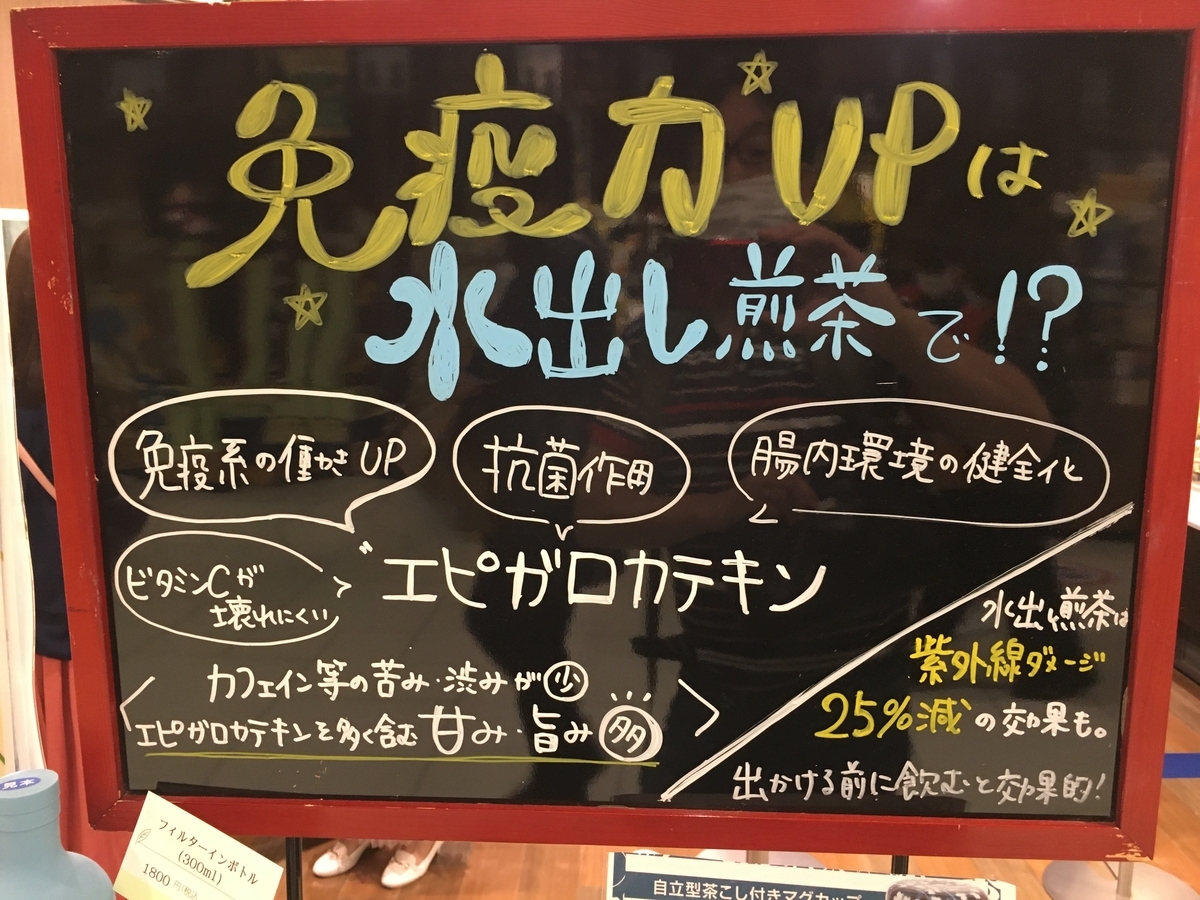 免疫力UPは
水出し煎茶で!?
免疫系の働きUP
抗菌作用
腸内環境の健全化
ビタミンCが
壊れにくい
"エピガロカテキン
カフェイン等の苦み・渋みが少
エピガロカテキンを多く含む甘み・旨み多
水出し煎茶は
紫外線ダメージ
25%減の効果も。
出かける前に飲むと効果的!
見本
フィルターインボトル
(300ml)
1800円(税込
自立型茶こし付きマグカップ